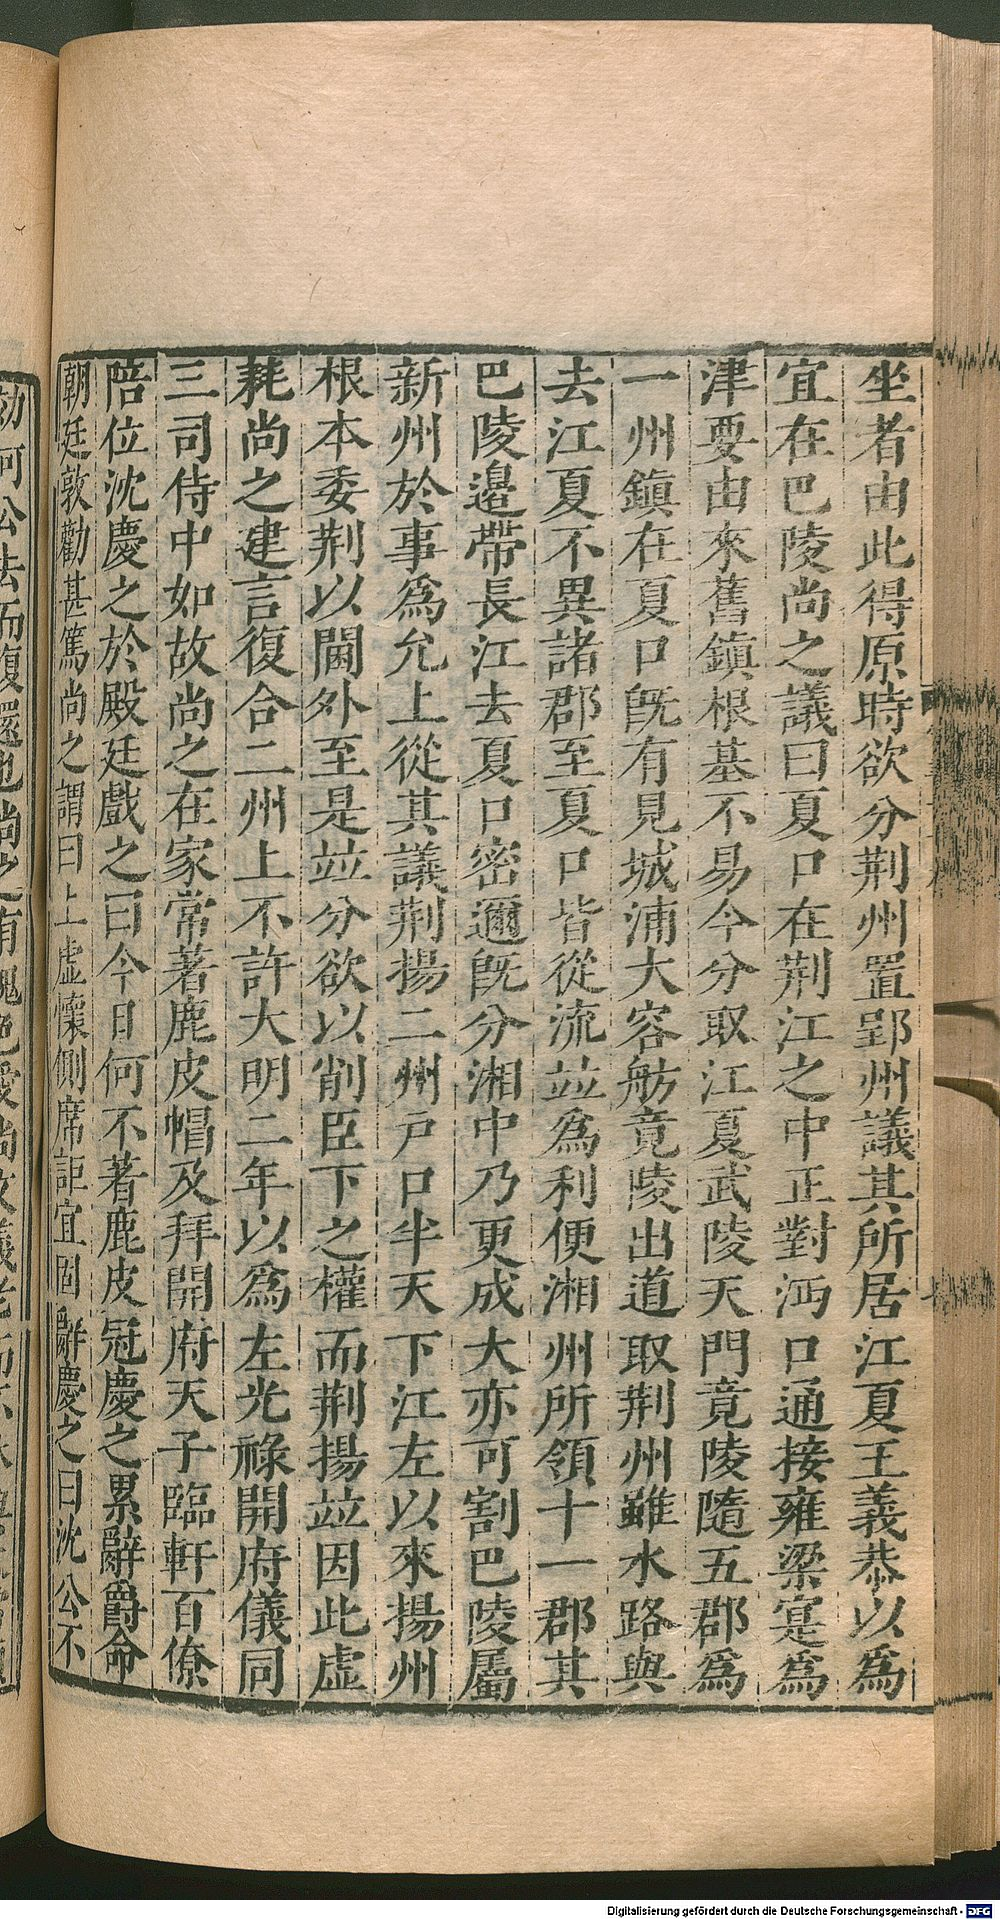 坐者由此得原時欲分荆州置郢州議其所居江夏王義恭以為
宜在巴陵尚之議曰夏口在荆江之中正對沔口通接雍梁寔為
津要由來舊鎮根基不易今分取江夏武陵天門竟陵隨五郡為
一州鎮在夏口既有見城浦大容舫竟陵出道取荆州雖水路與
去江夏不異諸郡至夏口皆從流竝為利便湘州所領十一郡其
巴陵邉帶長江去夏口密邇既分湘中乃更成大亦可割巴陵屬
新州於事為允上從其議荆揚二州户口半天下江左以來揚州
根本委荆以閫外至是竝分欲以削臣下之權而荆揚竝因此虚
耗尚之建言復合二州上不許大明二年以為左光祿開府儀同
三司侍中如故尚之在家常著鹿皮帽及拜開府天子臨軒百僚
陪位沈慶之於殿廷戲之曰今日何不著鹿皮冠慶之累辭爵命
朝廷敦勸甚篤尚之謂曰上虚懷側席詎宜固辭慶之曰沈公不
効何公去而復還也尚之有愧色愛尚文義老而不休
Digitalisierung gefördert durch die Deutsche Forschungsgemeinschaft - DFG